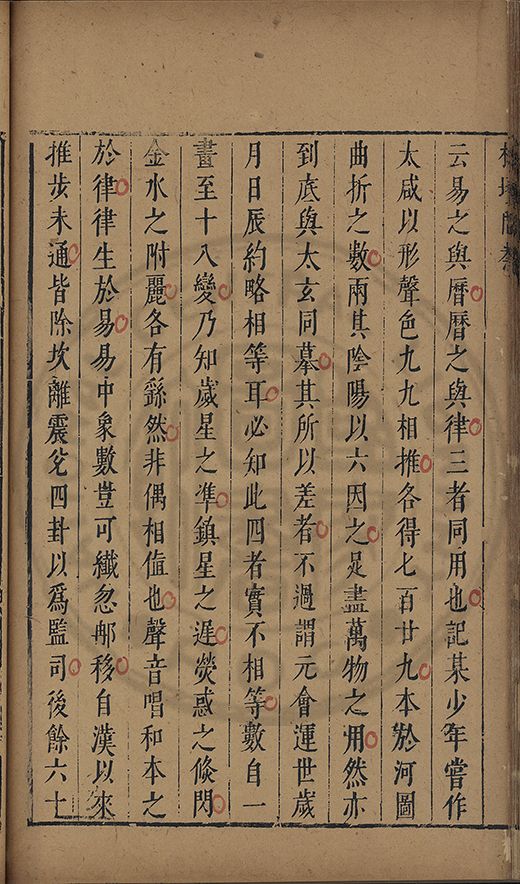 云易之與曆曆之與律三者同用也記某少年嘗作
太咸以形聲色九九相推各得七百廿九本於河圖
曲折之數兩其陰陽以六因之足盡萬物之用然亦
到底與太玄同摹其所以差者不過謂元會運世歲
月日辰約略相等耳必知此四者實不相等數自一
畫至十八變乃知歲星之準鎮星之遲熒惑之倏閃
金水之附麗各有繇然非偶相值也聲音唱和本之
於律律生於易易中象數豈可纖忽那移自漢以來
推步未通皆除坎離震兌四卦以爲監司後餘六十